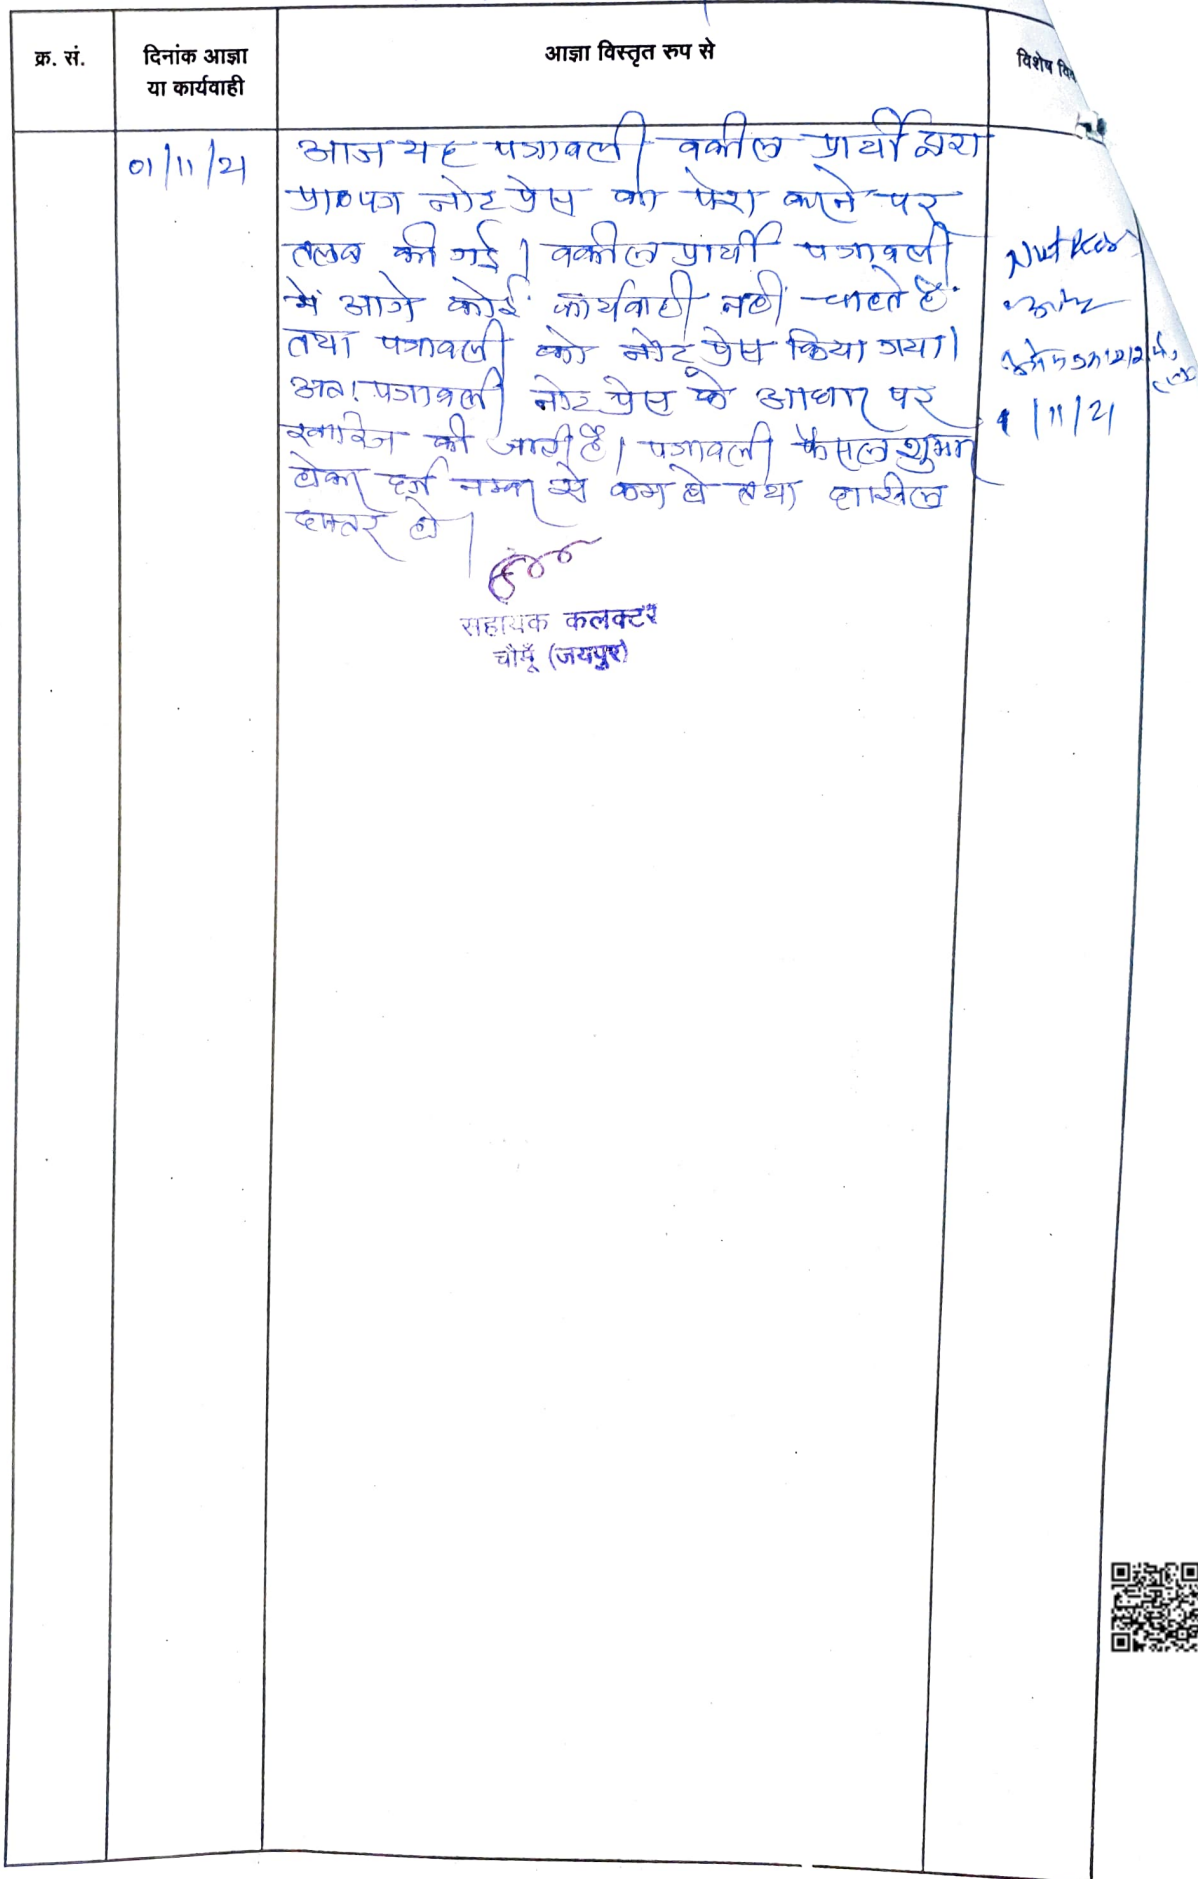 क्र. सं.
दिनांक आज्ञा
या कार्यवाही
आज्ञा विस्तृत रुप से
विशेष वि
01/11/21
आज यह पत्रावली वकील प्रार्थी द्वारा
प्रा०पत्र नोट प्रेस का पेश करने पर
तलब की गई। वकील प्रार्थी पत्रावली
में आगे कोई कार्यवाही नहीं चाहते हैं
तथा पत्रावली को नोट प्रेस किया गया।
अतः पत्रावली नोट प्रेस के आधार पर
खारिज की जाती है। पत्रावली फैसल शुमार
होकर दर्ज नम्बर से कम हो तथा दाखिल
दफ्तर हो।
सहायक कलक्टर
चौमूँ (जयपुर)
1/11/21